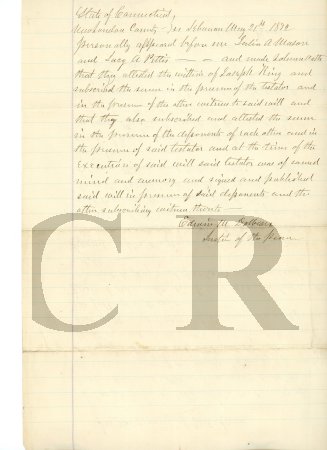 State of Connecticut,
New London County ss Lebanon May 21st 1872
Personally appeared before me A Mason
and Lucy A Pettis — — and made solemn oath
that they attested the within of Joseph King and
subscribed the same in the presence of the testator and
in the presence of the other witness to said will and
that they also subscribed and attested the same
in the presence of the deponents of each other and in
the presence of said testator and at the time of the
execution of said will said testator was of sound
mind and memory and signed and published
said will in presence of said deponents and the
other subscribing witness thereto
Edwin M
Justice of the Peace
CR